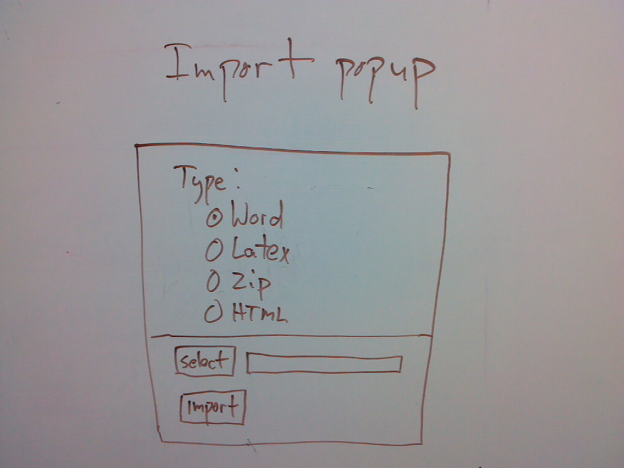 Import popup
Type:
Word
Latex
Zip
HTML
select
Import